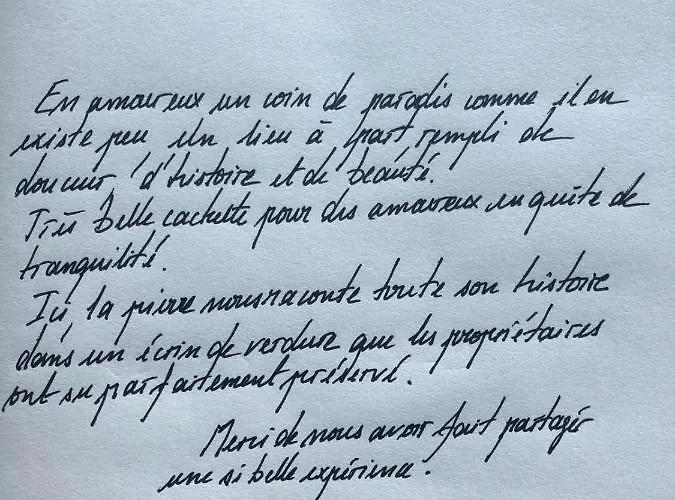 En amoureux un coin de paradis comme il en
existe peu Un lieu à part rempli de
douceur, d'histoire et de beauté.
Très belle cachette pour des amoureux en quête de
tranquilité.
Ici la pierre nous raconte toute son histoire
dans un écrin de verdure que les propriétaires
ont su parfaitement préservé.
Merci de nous avoir fait partager
une si belle expérience.